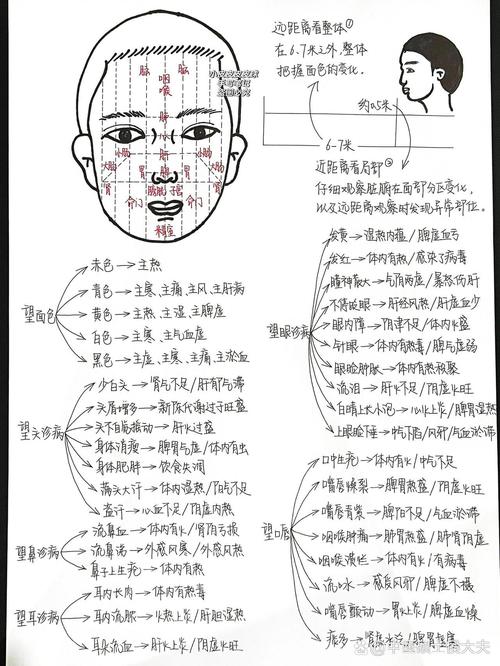 远距离看整体①
在6.7米之外,整体
把握面色的变化.
约0.5米
6-7米
近距离看局部②
仔细观察脏腑在面部分区变化,
以及远距离观察时发现异常部位。
脑
脑
咽
喉
肺
心
肝
胆
脾
胃
胃
小肠
小肠
大肠
大肠
肾
肾
膀胱
子宫
命门
命门
望面色
赤色→主热
青色→主寒、主痛、主风、主肝病
黄色→主热、主湿、主脾虚
白色→主寒、主气血虚
黑色→主虚、主寒、主痛、主淤血
望头诊病
少白头→肾气不足/肝郁气滞
头屑增多→新陈代谢过于旺盛
头不自觉摇动→肝火过盛
身体消瘦→脾胃气虚/体内有虫
身体肥胖→饮食失调
满头大汗→体内湿热/阳气不足
盗汗→心血不足/阴虚内热
望鼻诊病
流鼻血→体内有火/肾阴亏损
流鼻涕→外感风寒/外感风热
鼻子上生疮→体内有热
望耳诊病
耳内长肉→体内有热毒
耳内流脓→火热上炎/肝胆湿热
耳朵流血→肝火上炎/阴虚火旺
望眼诊病
发黄→湿热内蕴/脾虚血亏
发红→体内有热/感染了病毒
瞳神散大→气阴两虚/暴怒伤肝
不停眨眼→肝经风热/肝虚血少
眼内障→阴津不足/体内火盛
针眼→体内有热毒/脾气虚弱
眼睑肿胀→体内有热积聚
流泪→肝火不足/阴虚火旺
白睛上长小泡→心火上炎/脾胃湿热
上眼睑下垂→中气下陷/风邪/气血淤滞
望口唇
口中生疮→体内有火/中气不足
嘴唇燥裂→脾胃热盛/阴虚火旺
嘴唇青紫→脾阳不足/气血淤滞
咽喉肿痛→肺胃热盛/肺肾阴虚
咽喉溃烂→体内有火/有病毒
流口水→感受风邪/脾虚不摄
嘴唇颤动→胃火上炎/脾虚血燥